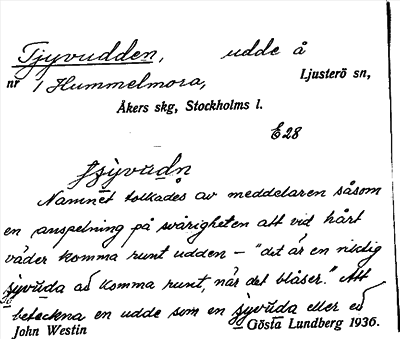 Tjyvudden, udde å
nr 1 Hummelmora, Ljusterö sn,
Åkers skg, Stockholms l.
E28
Namnet tolkades av meddelaren såsom
en anspelning på svårigheten att vid hårt
väder komma runt udden – "det är en riktig
att komma runt, när det blåser." Att
beteckna en udde som en eller
John Westin Gösta Lundberg 1936.